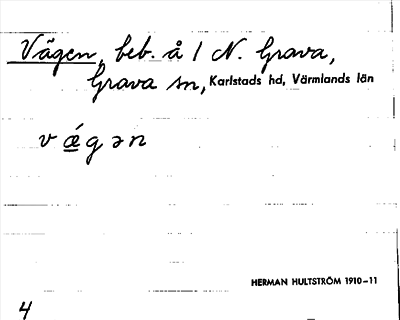 Vägen, beb. å 1 N. Grava,
Grava sn, Karlstads hd, Värmlands län
v ǽ̲ g ə n
HERMAN HULTSTRÖM 1910–11
4